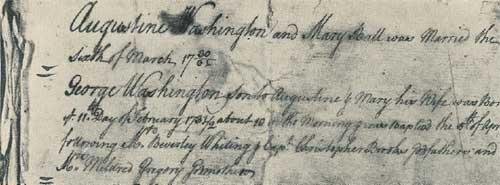 Augustine Washington and Mary Ball was Married the
Sixth of March 17 30/31
George Washington Son to Augustine & Mary his Wife was Born
ye 11th Day of February 1731/2 about 10 in the Morning & was Baptised the 5th of April
following Mr Beverley Whiting & Capt Christopher Brooks Godfathers and
Mrs Mildred Gregory Godmother